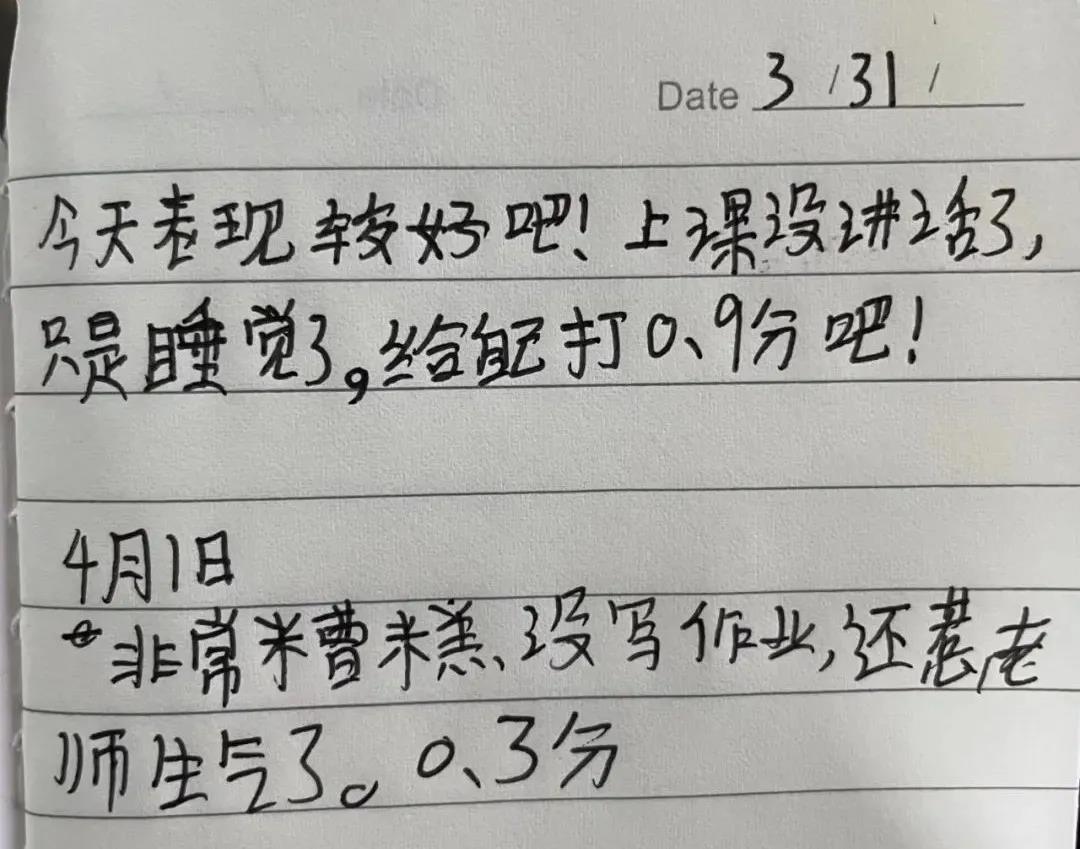 Date 3/31/
今天表现较好吧！上课没讲话了，
只是睡觉了。给自己打0、9分吧！
4月1日
非常糟糕、没写作业，还惹老
师生气了。0、3分